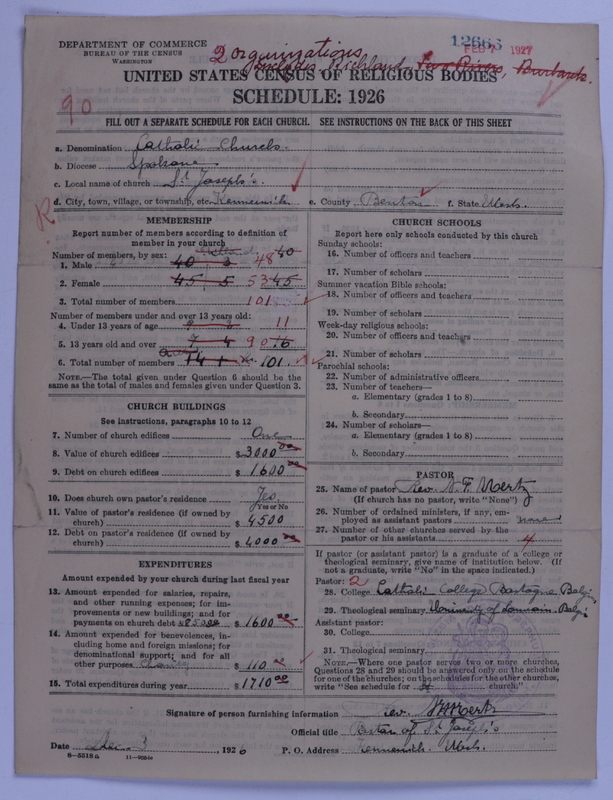 DEPARTMENT OF COMMERCE
BUREAU OF THE CENSUS
WASHINGTON
12666
FEB 7 1927
2 organizations
Includes Richland, Two Rivers, Burbank.
UNITED STATES CENSUS OF RELIGIOUS BODIES
SCHEDULE: 1926
90
FILL OUT A SEPARATE SCHEDULE FOR EACH CHURCH. SEE INSTRUCTIONS ON THE BACK OF THIS SHEET
a. Denomination Catholic Church.
b. Diocese Spokane
c. Local name of church St. Joseph's.
d. City, town, village, or township, etc. Kennewick e. County Benton f. State Wash.
R
MEMBERSHIP
Report number of members according to definition of
member in your church
Number of members, by sex:
1. Male 40 3 48 60
2. Female 45 5 53 45
3. Total number of members 101
Number of members under and over 13 years old:
4. Under 13 years of age 11
5. 13 years old and over 7 4 90
6. Total number of members 141 101.
NOTE.—The total given under Question 6 should be the
same as the total of males and females given under Question 3.
CHURCH BUILDINGS
See instructions, paragraphs 10 to 12
7. Number of church edifices One
8. Value of church edifices $3000 00
9. Debt on church edifices $1600 00
10. Does church own pastor's residence Yes.
Yes or No
11. Value of pastor's residence (if owned by
church) $4500
12. Debt on pastor's residence (if owned by
church) $4000 00
EXPENDITURES
Amount expended by your church during last fiscal year
13. Amount expended for salaries, repairs,
and other running expenses; for im-
provements or new buildings; and for
payments on church debt $1600 00
14. Amount expended for benevolences, in-
cluding home and foreign missions; for
denominational support; and for all
other purposes Charity $110 00
15. Total expenditures during year $1710 00
CHURCH SCHOOLS
Report here only schools conducted by this church
Sunday schools:
16. Number of officers and teachers
17. Number of scholars
Summer vacation Bible schools:
18. Number of officers and teachers
19. Number of scholars
Week-day religious schools:
20. Number of officers and teachers
21. Number of scholars
Parochial schools:
22. Number of administrative officers
23. Number of teachers—
a. Elementary (grades 1 to 8)
b. Secondary
24. Number of scholars—
a. Elementary (grades 1 to 8)
b. Secondary
PASTOR
25. Name of pastor Rev. Mertz
(If church has no pastor, write "None")
26. Number of ordained ministers, if any, em-
ployed as assistant pastors none
27. Number of other churches served by the
pastor or his assistants 4
If pastor (or assistant pastor) is a graduate of a college or
theological seminary, give name of institution below. (If
not a graduate, write "No" in the space indicated.)
Pastor: 2
28. College Catholic College Bastogne Belg.
29. Theological seminary University of Louvain. Belg.
Assistant pastor:
30. College
31. Theological seminary
NOTE.—Where one pastor serves two or more churches,
Questions 28 and 29 should be answered only on the schedule
for one of the churches; on the schedules for the other churches,
write "See schedule for St church."
Signature of person furnishing information Rev. Mertz
Official title Pastor of St. Joseph's
Date 3, 1926 P. O. Address Kennewick Wash.
8—5518a 11—9254